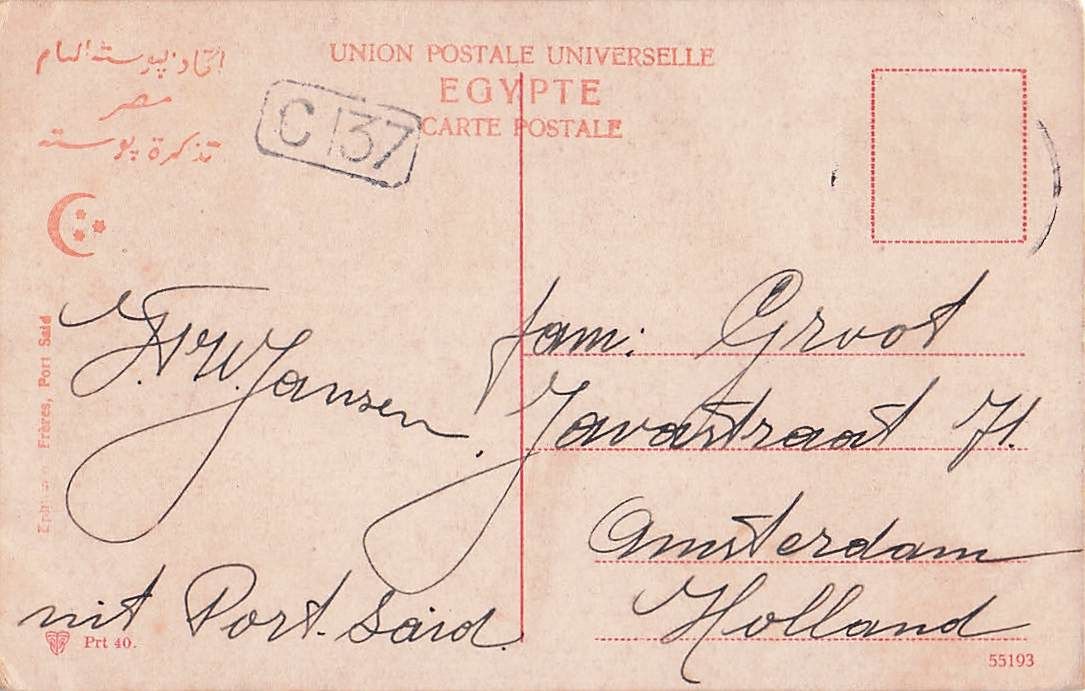 اتحاد پوسته العام
مصر
تذكرة پوسته
UNION POSTALE UNIVERSELLE
EGYPTE
CARTE POSTALE
C 137
Frères, Port Said
Jansen.
nit Port. Saïd.
Prt 40.
fam: Groot
Javastraat 71.
Amsterdam
Holland
55193